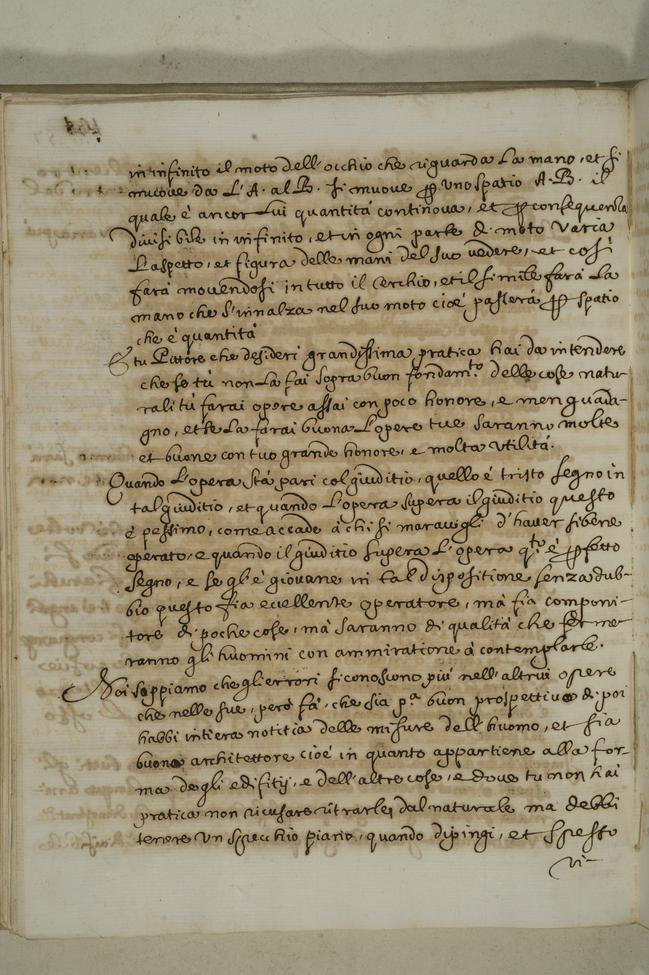 in infinito il moto dell'occhio che riguarda la mano, et si
muove da L'A. al B. si muove ꝑ uno spatio A.B. il
quale è ancor lui quantità continova, et ꝑ consequenza
divisibile in infinito, et in ogni parte di moto varia
L'aspetto, et figura delle mani del suo vedere, et così
farà movendosi in tutto il cerchio, et il simile farà la
mano che s'innalza nel suo moto cioè passerà ꝑ spatio
che è quantità
E tu Pittore che desideri grandissima pratica hai da intendere
che se tù non la fai sopra buon fondam.to delle cose natu-
rali tù farai opere assai con poco honore, e men guada-
gno, et se la farai buona L'opere tue saranno molte
et buone con tuo grande honore, e molta utilità.
Quando L'opera stà pari col giuditio, quello è tristo segno in
tal giuditio, et quando L'opera supera il giuditio questo
è pessimo, come accade à chi si maravigli d'haver sì bene
operato, e quando il giuditio supera L'opera q.to è ꝑfetto
segno, e se gl'è giovane in tal dispositione senza dub-
bio questo fia ecellente operatore, mà fia componi-
tore di poche cose, mà saranno di qualità che ferme-
ranno gli huomini con ammiratione à contemplarle.
Noi sappiamo che gl'errori si conoscono più nell'altrui opere
che nelle sue, però fà, che sia p.a buon prospettivo di poi
habbi intiera notitia delle misure dell'huomo, et sia
buono architettore cioè in quanto appartiene alla for-
ma degli edifitij, e dell'altre cose, e dove tu non hai
pratica non ricusare ritrarlei dal naturale mà debbi
tenere un specchio piano, quando dipingi, et spesso
vi-